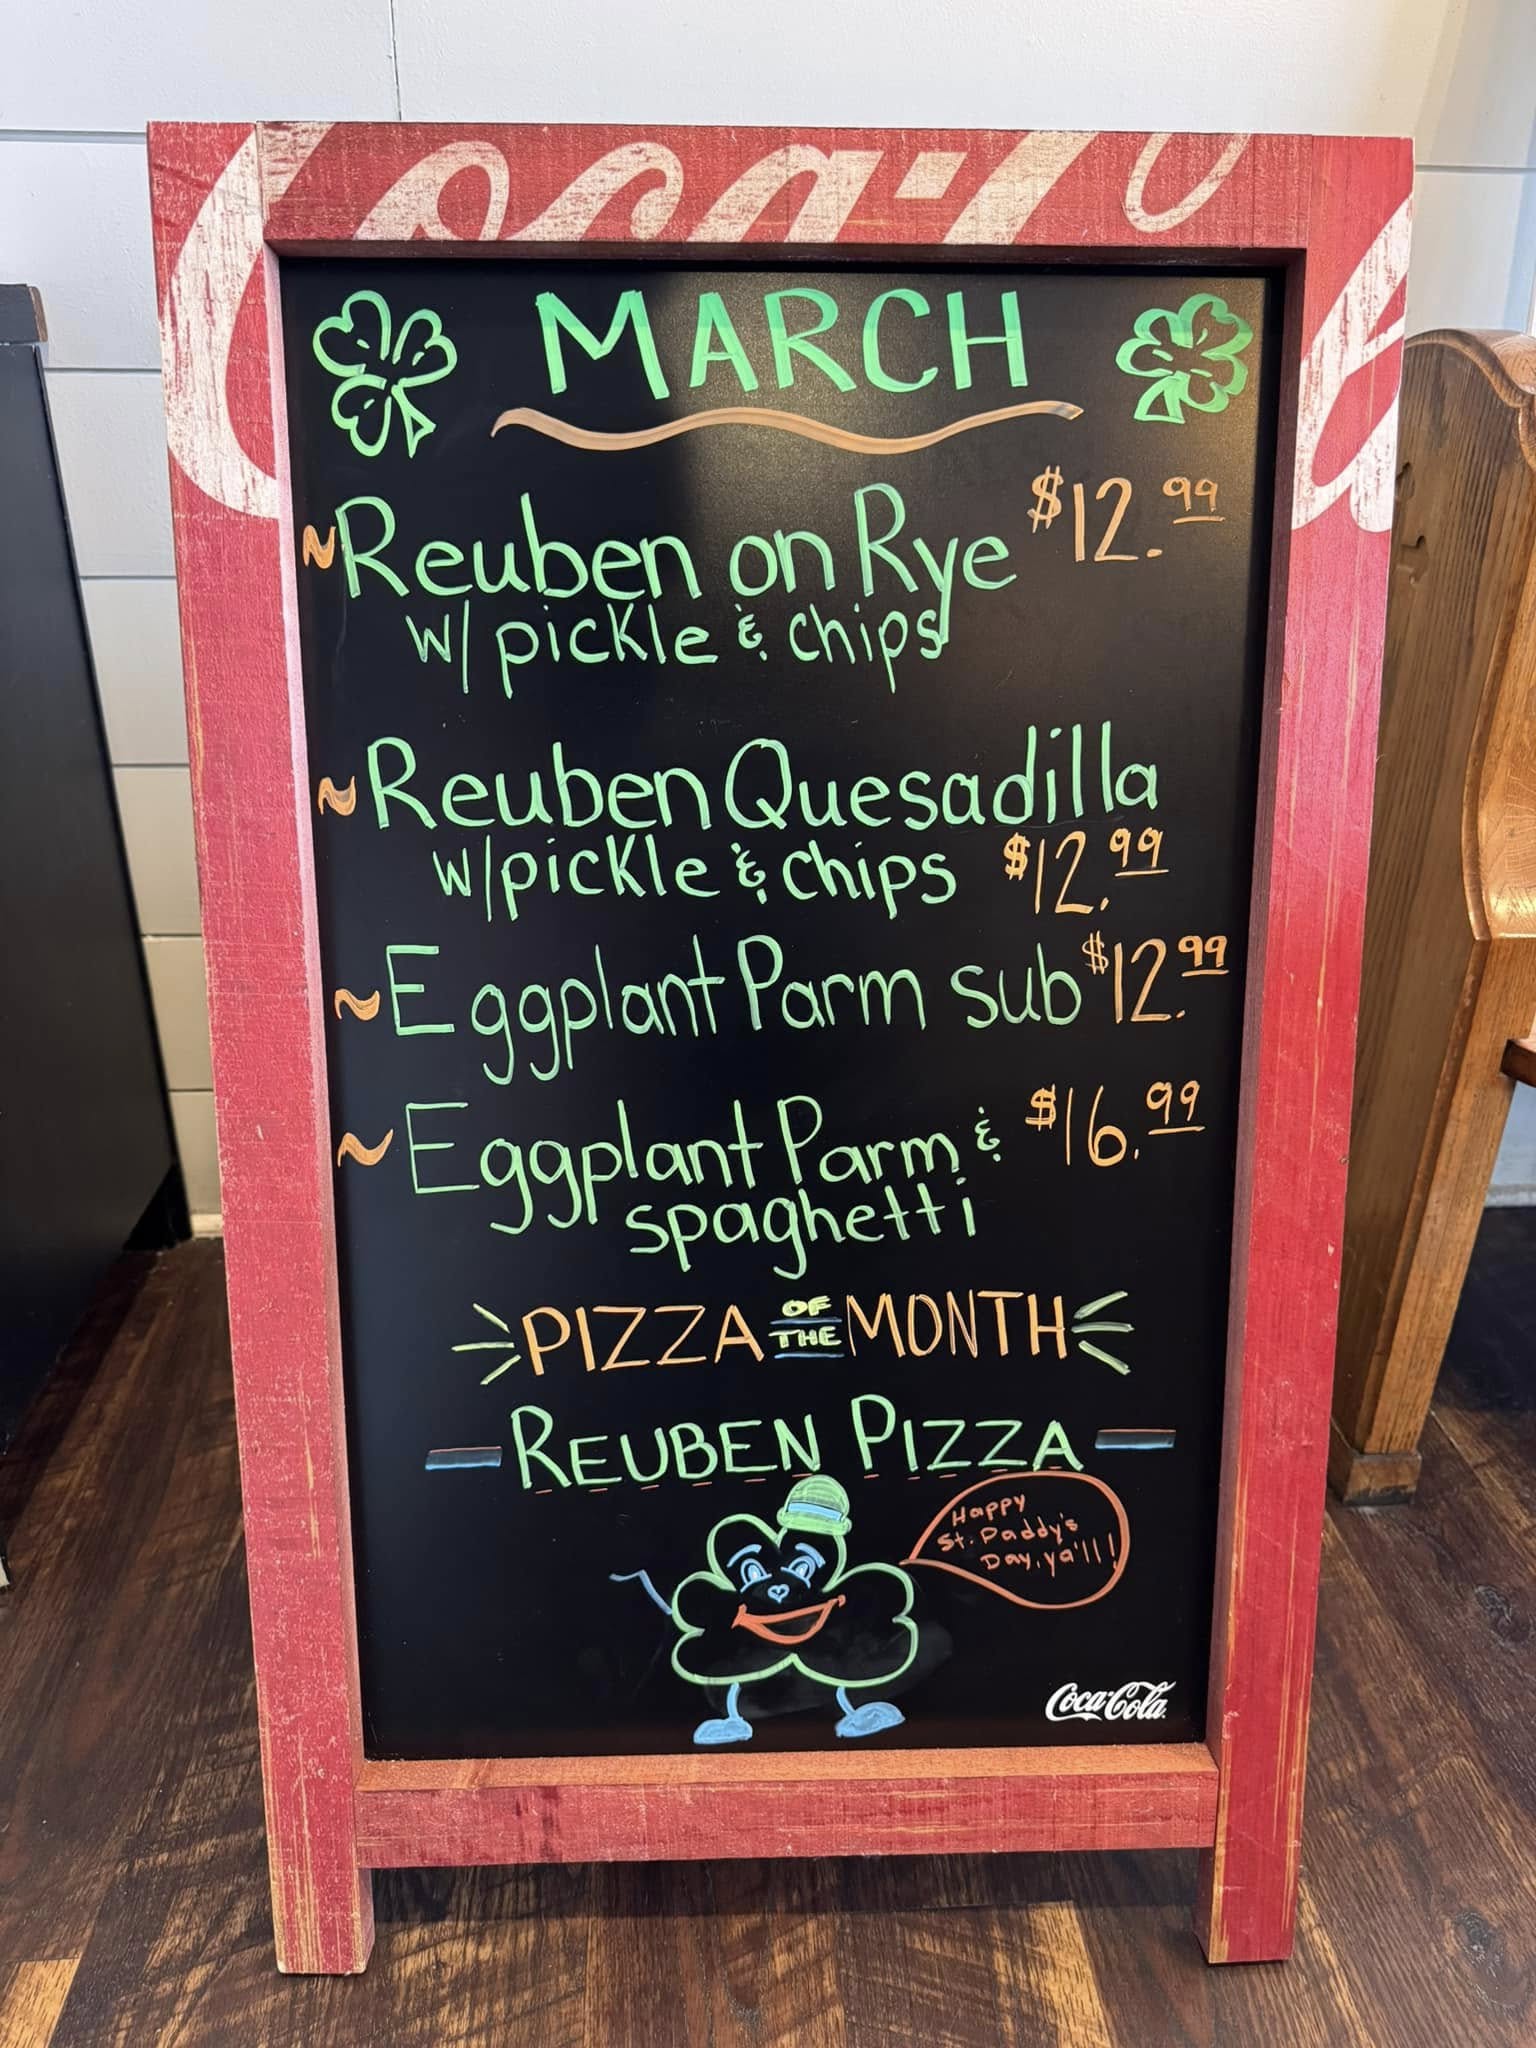 Coca-Co
MARCH
~Reuben on Rye $12.99
w/ pickle & chips
~Reuben Quesadilla
w/pickle & chips $12.99
~Eggplant Parm sub $12.99
~Eggplant Parm & $16.99
spaghetti
PIZZA OF THE MONTH
- REUBEN PIZZA -
Happy
St. Paddy's
Day, ya'll!
Coca-Cola